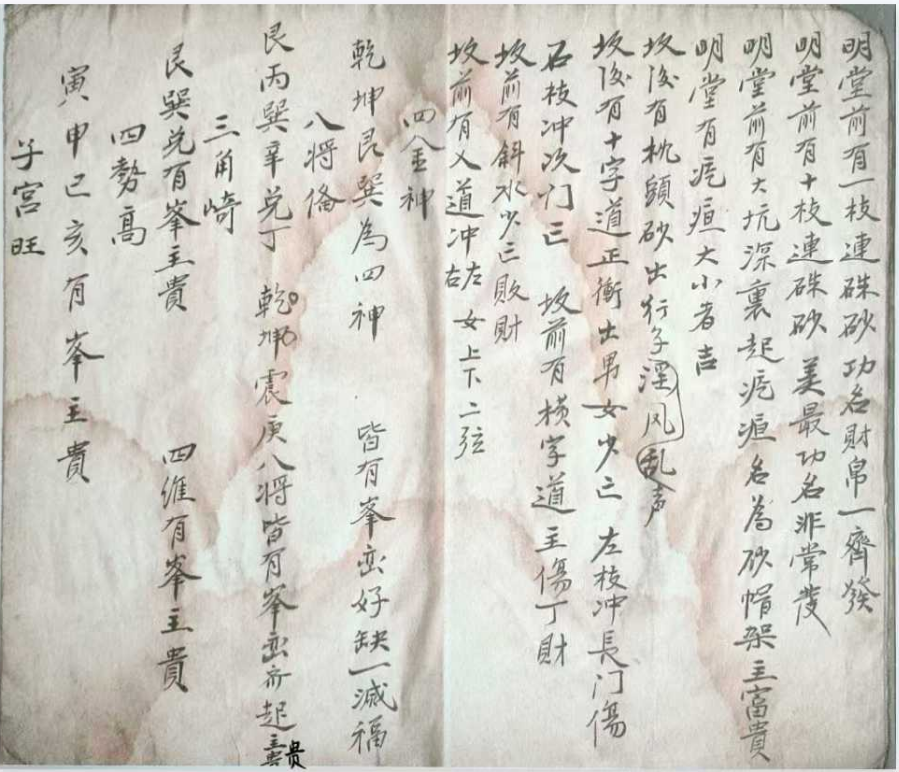 明堂前有一枝連硃砂功名財帛一齊發
明堂前有十枝連硃砂美最功名非常發
明堂前有大坑深裏起疙疸名為砂帽架主富貴
明堂有疙疸大小者吉
坟後有枕頭砂出行子淫风乱声
坟後有十字道正衝出男女少亡 左枝冲長门傷
右枝冲次门亡 坟前有横字道主傷丁財
坟前有斜水少亡敗財
坟前有人道冲左右女上下二弦
四金神
乾坤艮巽為四神 皆有峯峦好缺一減福
八将俻
艮丙巽辛兑丁 乾坤震庚八将皆有峯峦齐起主貴
三角崎
艮巽兑有峯主貴 四維有峯主貴
四勢高
寅申巳亥有峯主貴
子宮旺